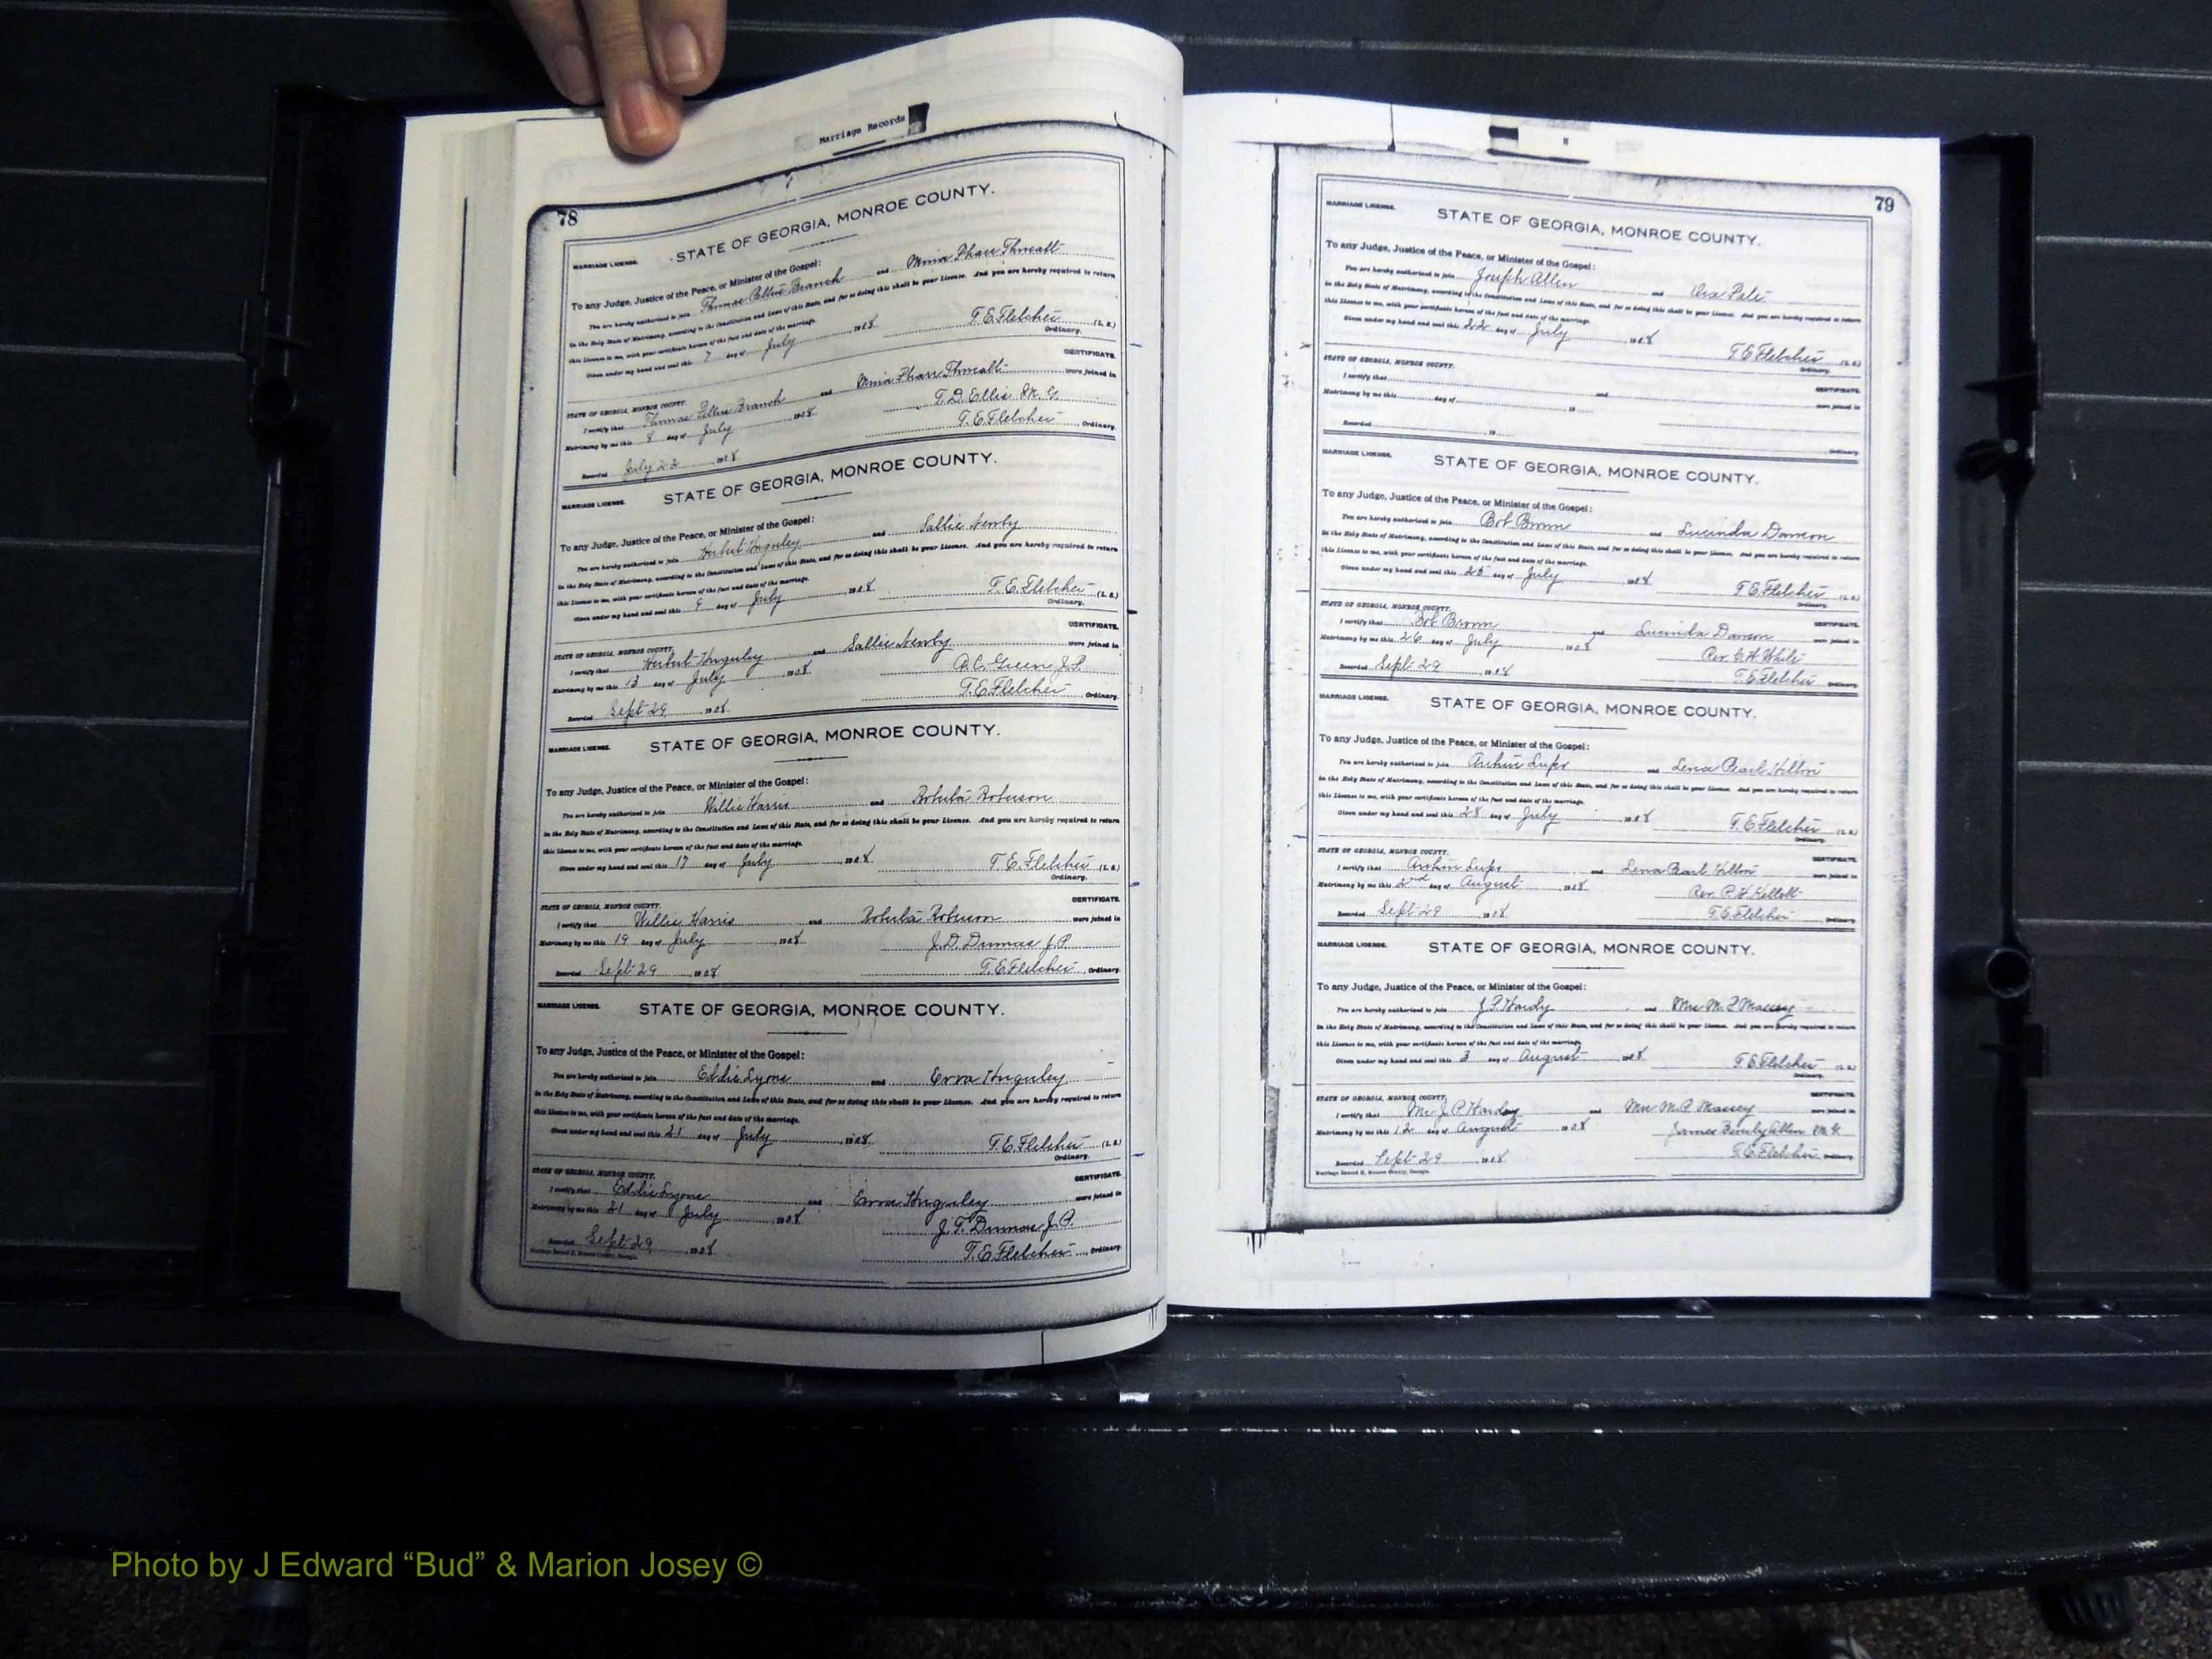 Marriage Records
78
MARRIAGE LICENSE. STATE OF GEORGIA, MONROE COUNTY.
To any Judge, Justice of the Peace, or Minister of the Gospel:
You are hereby authorized to join Thomas Branch and Threatt
in the Holy State of Matrimony, according to the Constitution and Laws of this State, and for so doing this shall be your License. And you are hereby required to return
this License to me, with your certificate hereon of the fact and date of the marriage.
Given under my hand and seal this 7 day of July, 1908 T. E. Fletcher (L. S.)
Ordinary.
STATE OF GEORGIA, MONROE COUNTY. CERTIFICATE.
I certify that Thomas Branch and Threatt were joined in
Matrimony by me this 8 day of July 1908 T. D. Ellis M. G.
Recorded July 23 1908 T. E. Fletcher, Ordinary.
MARRIAGE LICENSE. STATE OF GEORGIA, MONROE COUNTY.
To any Judge, Justice of the Peace, or Minister of the Gospel:
You are hereby authorized to join Herbert Huguley and Sallie Newby
in the Holy State of Matrimony, according to the Constitution and Laws of this State, and for so doing this shall be your License. And you are hereby required to return
this License to me, with your certificate hereon of the fact and date of the marriage.
Given under my hand and seal this 9 day of July, 1908 T. E. Fletcher (L. S.)
Ordinary.
STATE OF GEORGIA, MONROE COUNTY. CERTIFICATE.
I certify that Herbert Huguley and Sallie Newby were joined in
Matrimony by me this 13 day of July 1908 Green J. P.
Recorded Sept 29 1908 T. E. Fletcher, Ordinary.
MARRIAGE LICENSE. STATE OF GEORGIA, MONROE COUNTY.
To any Judge, Justice of the Peace, or Minister of the Gospel:
You are hereby authorized to join Willie Harris and Robinson
in the Holy State of Matrimony, according to the Constitution and Laws of this State, and for so doing this shall be your License. And you are hereby required to return
this License to me, with your certificate hereon of the fact and date of the marriage.
Given under my hand and seal this 17 day of July, 1908 T. E. Fletcher (L. S.)
Ordinary.
STATE OF GEORGIA, MONROE COUNTY. CERTIFICATE.
I certify that Willie Harris and Robinson were joined in
Matrimony by me this 19 day of July, 1908 J. D. Dumas J. P.
Recorded Sept 29, 1908 T. E. Fletcher, Ordinary.
MARRIAGE LICENSE. STATE OF GEORGIA, MONROE COUNTY.
To any Judge, Justice of the Peace, or Minister of the Gospel:
You are hereby authorized to join Eddie Lyons and Huguley
in the Holy State of Matrimony, according to the Constitution and Laws of this State, and for so doing this shall be your License. And you are hereby required to return
this License to me, with your certificate hereon of the fact and date of the marriage.
Given under my hand and seal this 21 day of July, 1908. T. E. Fletcher (L. S.)
Ordinary.
STATE OF GEORGIA, MONROE COUNTY. CERTIFICATE.
I certify that Eddie Lyons and Huguley were joined in
Matrimony by me this 21 day of July, 1908 Dumas J. P.
Recorded Sept 29, 1908. T. E. Fletcher, Ordinary.
Marriage Record H, Monroe County, Georgia.
H
79
MARRIAGE LICENSE. STATE OF GEORGIA, MONROE COUNTY.
To any Judge, Justice of the Peace, or Minister of the Gospel:
You are hereby authorized to join Joseph Allen and Pate
in the Holy State of Matrimony, according to the Constitution and Laws of this State, and for so doing this shall be your License. And you are hereby required to return
this License to me, with your certificate hereon of the fact and date of the marriage.
Given under my hand and seal this 22 day of July, 1908 T. E. Fletcher (L. S.)
Ordinary.
STATE OF GEORGIA, MONROE COUNTY. CERTIFICATE.
I certify that and were joined in
Matrimony by me this day of, 19
Recorded, 19 , Ordinary.
MARRIAGE LICENSE. STATE OF GEORGIA, MONROE COUNTY.
To any Judge, Justice of the Peace, or Minister of the Gospel:
You are hereby authorized to join Bob Brown and Lucinda Dawson
in the Holy State of Matrimony, according to the Constitution and Laws of this State, and for so doing this shall be your License. And you are hereby required to return
this License to me, with your certificate hereon of the fact and date of the marriage.
Given under my hand and seal this 25 day of July, 1908 T. E. Fletcher (L. S.)
Ordinary.
STATE OF GEORGIA, MONROE COUNTY. CERTIFICATE.
I certify that Bob Brown and Lucinda Dawson were joined in
Matrimony by me this 26 day of July, 1908 Rev. White
Recorded Sept 29, 1908 T. E. Fletcher Ordinary.
MARRIAGE LICENSE. STATE OF GEORGIA, MONROE COUNTY.
To any Judge, Justice of the Peace, or Minister of the Gospel:
You are hereby authorized to join and Lena Pearl Hilton
in the Holy State of Matrimony, according to the Constitution and Laws of this State, and for so doing this shall be your License. And you are hereby required to return
this License to me, with your certificate hereon of the fact and date of the marriage.
Given under my hand and seal this 28 day of July, 1908 T. E. Fletcher (L. S.)
STATE OF GEORGIA, MONROE COUNTY. CERTIFICATE.
I certify that and Lena Pearl Hilton were joined in
Matrimony by me this 2nd day of August, 1908 Rev.
Recorded Sept 29, 1908 T. E. Fletcher, Ordinary.
MARRIAGE LICENSE. STATE OF GEORGIA, MONROE COUNTY.
To any Judge, Justice of the Peace, or Minister of the Gospel:
You are hereby authorized to join J. P. Hardy and Mrs M. P. Massey
in the Holy State of Matrimony, according to the Constitution and Laws of this State, and for so doing this shall be your License. And you are hereby required to return
this License to me, with your certificate hereon of the fact and date of the marriage.
Given under my hand and seal this 3 day of August 1908 T. E. Fletcher (L. S.)
Ordinary.
STATE OF GEORGIA, MONROE COUNTY. CERTIFICATE.
I certify that Mr J. P. Hardy and Mrs M. P. Massey were joined in
Matrimony by me this 12 day of August 1908 James Allen M. G.
Recorded Sept 29, 1908 T. E. Fletcher Ordinary.
Marriage Record H, Monroe County, Georgia.
Photo by J Edward “Bud” & Marion Josey ©